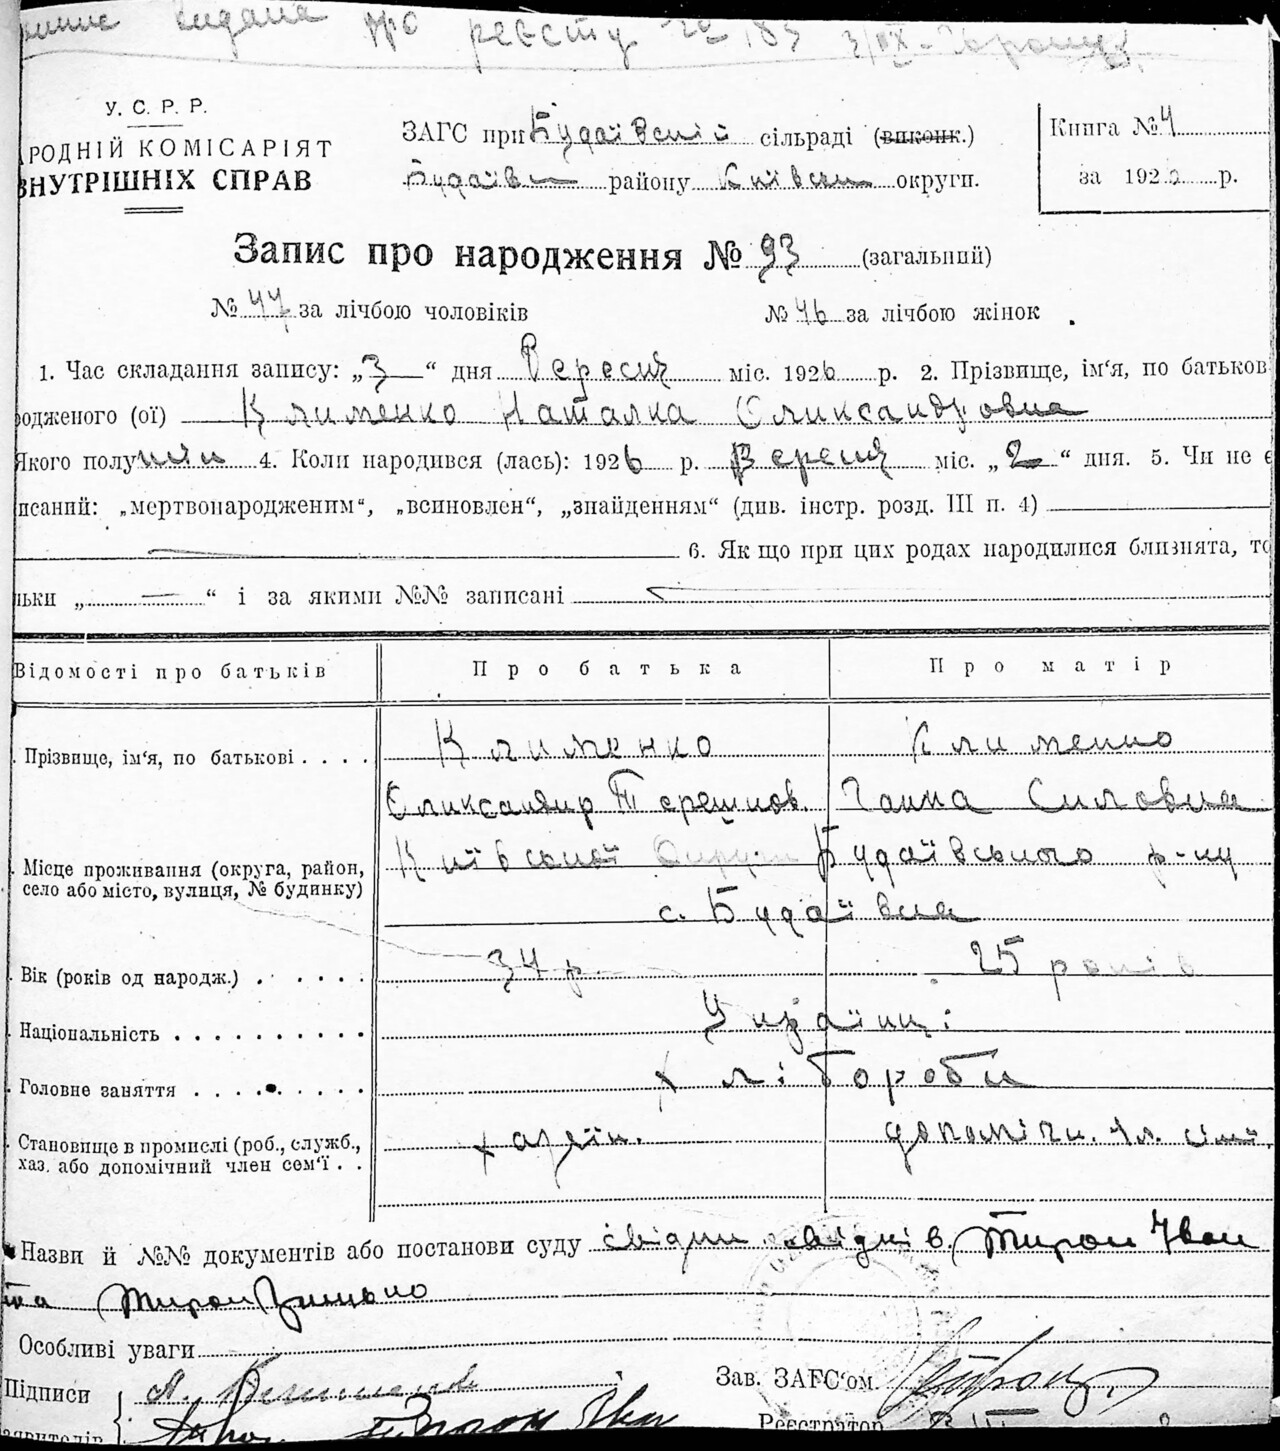 видана про реєстру № 183 3/IX-
У. С. Р. Р.
РОДНІЙ КОМІСАРІЯТ
ВНУТРІШНІХ СПРАВ
ЗАГС при Будаївській сільраді (виконк.)
Будаївськ району Київськ округи.
Книга № 4
за 1926 р.
Запис про народження № 93 (загальний)
№ 47 за лічбою чоловіків № 46 за лічбою жінок
1. Час складання запису: „3“ дня Вересня міс. 1926 р. 2. Прізвище, ім'я, по батьков
родженого (ої) Клименко Наталка Оликсандровна
Якого полу жін 4. Коли народився (лась): 1926 р. Вересня міс. „2“ дня. 5. Чи не є
писаний: „мертвонародженим“, „всиновлен“, „знайденням“ (див. інстр. розд. III п. 4)
6. Як що при цих родах народилися близнята, то
льки „—“ і за якими №№ записані
Відомості про батьків Про батька Про матір
Прізвище, ім'я, по батькові . . . . Клименко Клименко
Оликсандир Терешков. Ганна Силовна
Місце проживання (округа, район, село або місто, вулиця, № будинку) Київської Округи Будаївського р-ну
с. Будаївка
Вік (років од народж.) . . . . . . 34 р. 25 років
Національність . . . . . . . . . . Українці
Головне заняття . . . . . . . . . хлібороби
Становище в промислі (роб., служб., хаз. або допомічний член сем'ї . . хазяїн. допомічн. чл. сімї.
Назви й №№ документів або постанови суду свідки Тирон Іван
та Тирон
Особливі уваги
Підписи А. Клименко Зав. ЗАГС'ом
заявителів Тирон Іван Реєстратор